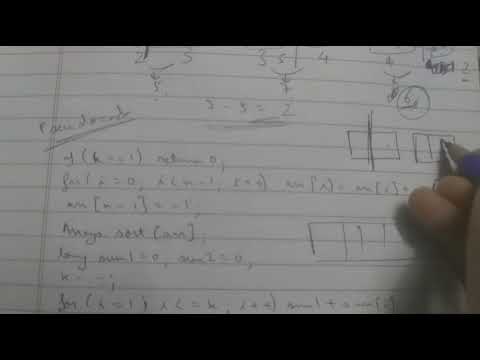 2 5 3 5 4 4 2
5 7 6
7 - 5 = 2
Pseudocode
if (k == 1) return 0;
for (i = 0, i < n-1, i++) arr[i] = arr[i] +
arr[n-1] = -1;
Arrays sort [arr];
long sum1 = 0, sum2 = 0,
k--;
for (i = 1; i <= k; i++) sum1 + =